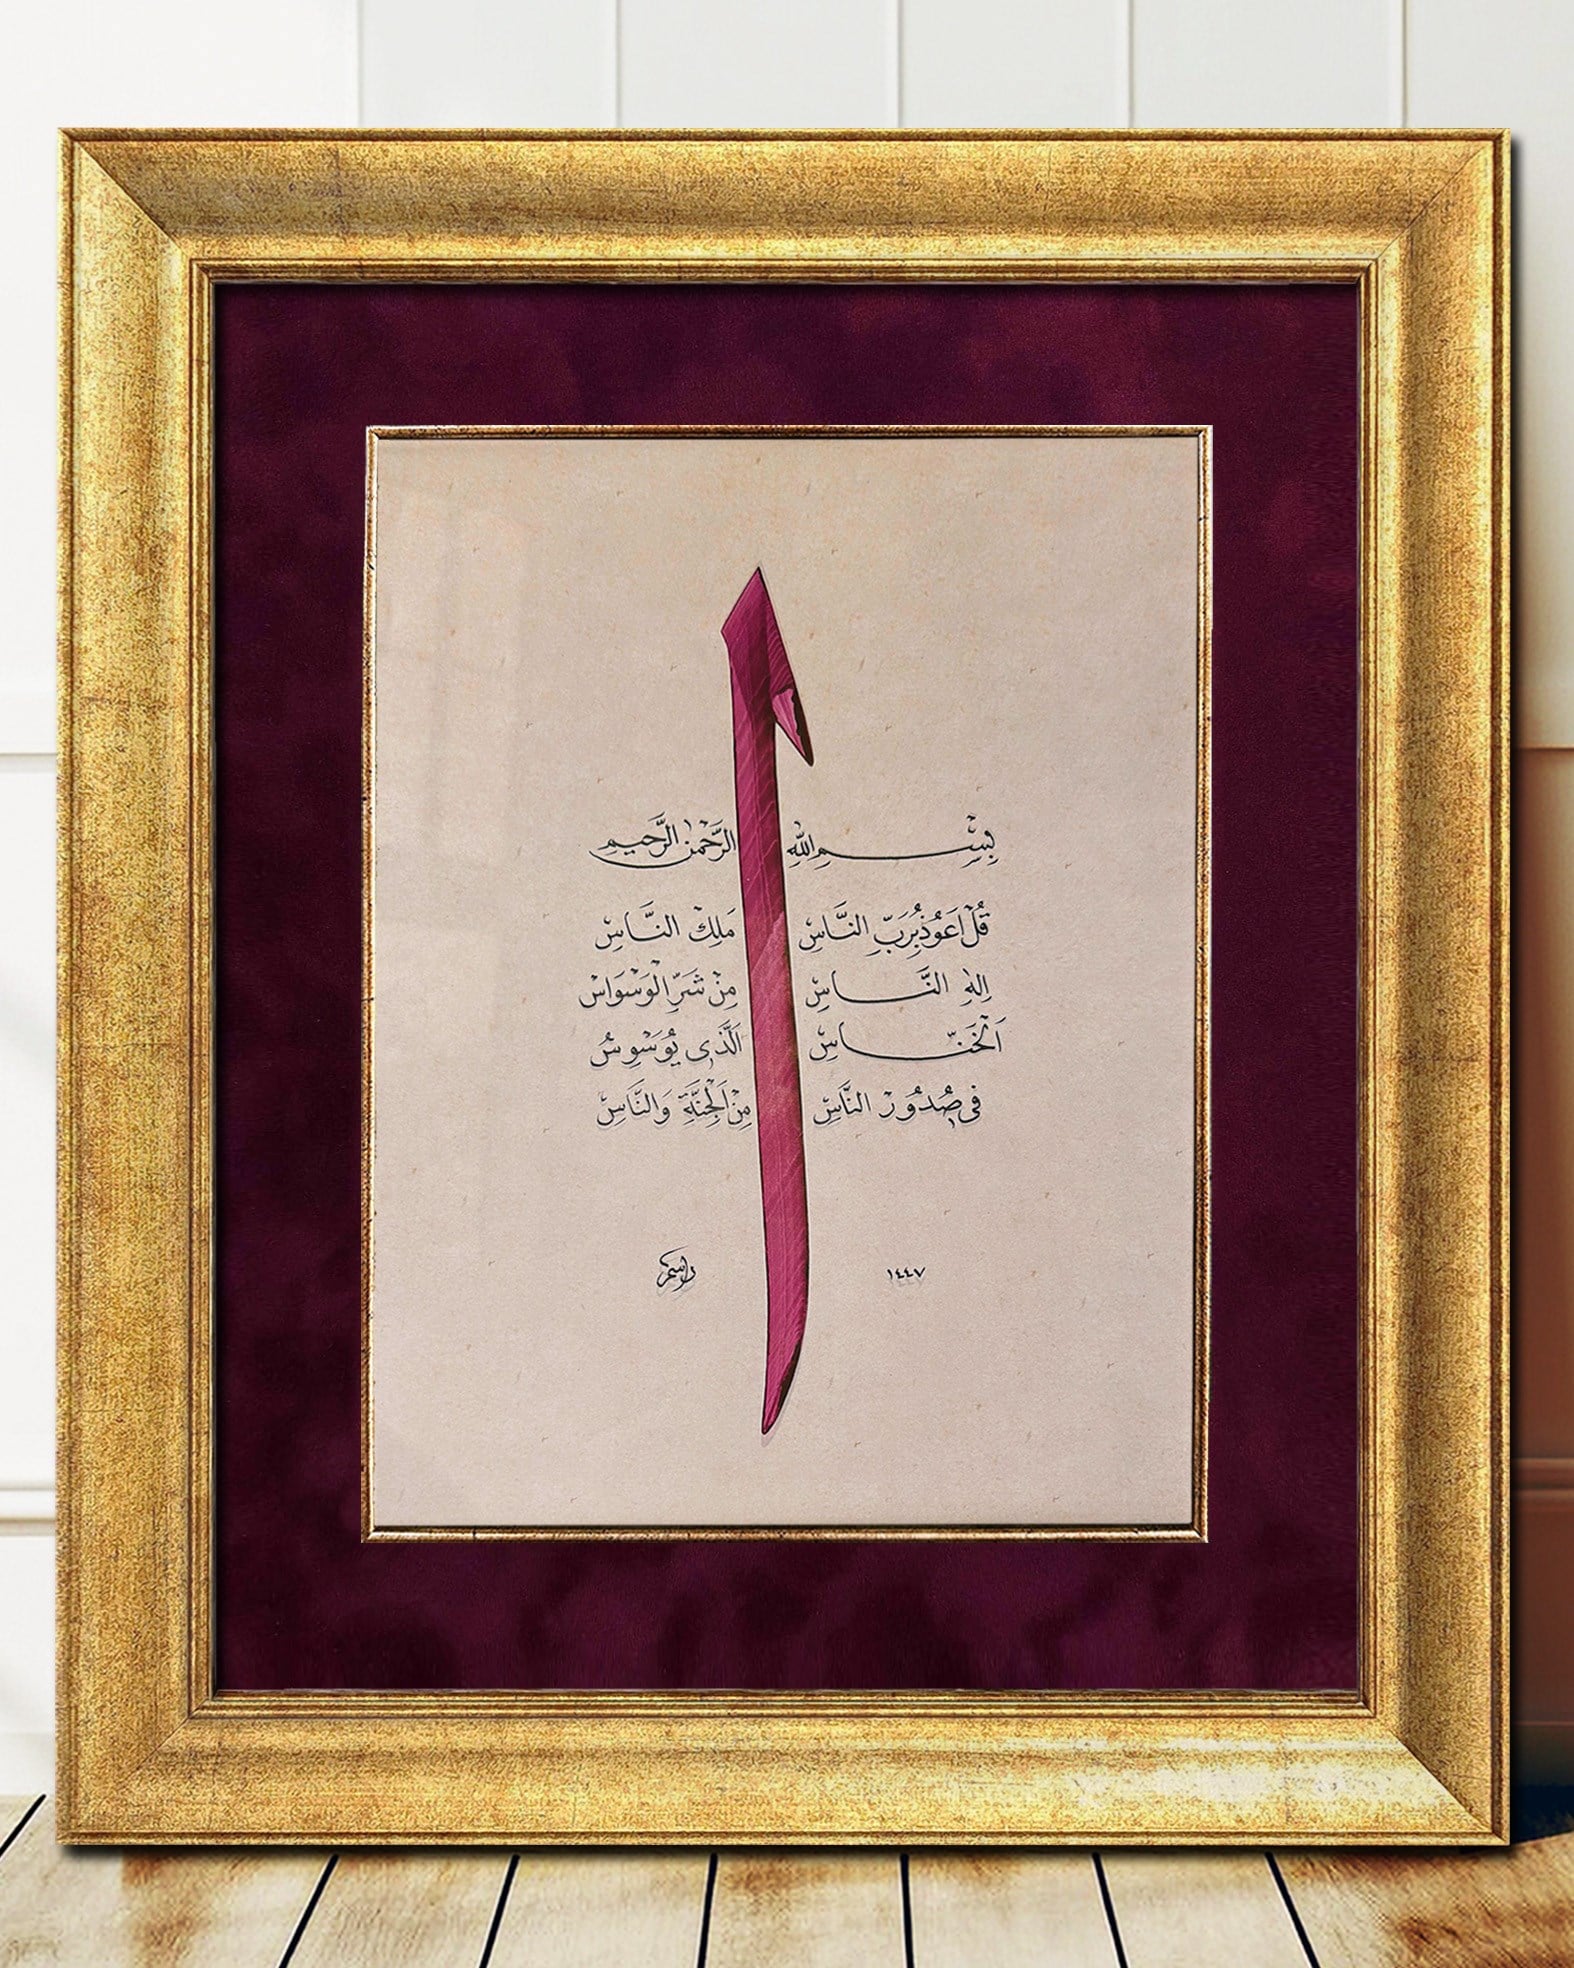 بِسْمِ اللهِ الرَّحْمٰنِ الرَّحِيمِ
قُلْ اَعُوذُ بِرَبِّ النَّاسِ مَلِكِ النَّاسِ
اِلٰهِ النَّاسِ مِنْ شَرِّ الْوَسْوَاسِ
اَلْخَنَّاسِ اَلَّذِى يُوَسْوِسُ
فِى صُدُورِ النَّاسِ مِنَ الْجِنَّةِ وَالنَّاسِ
١٤٤٧